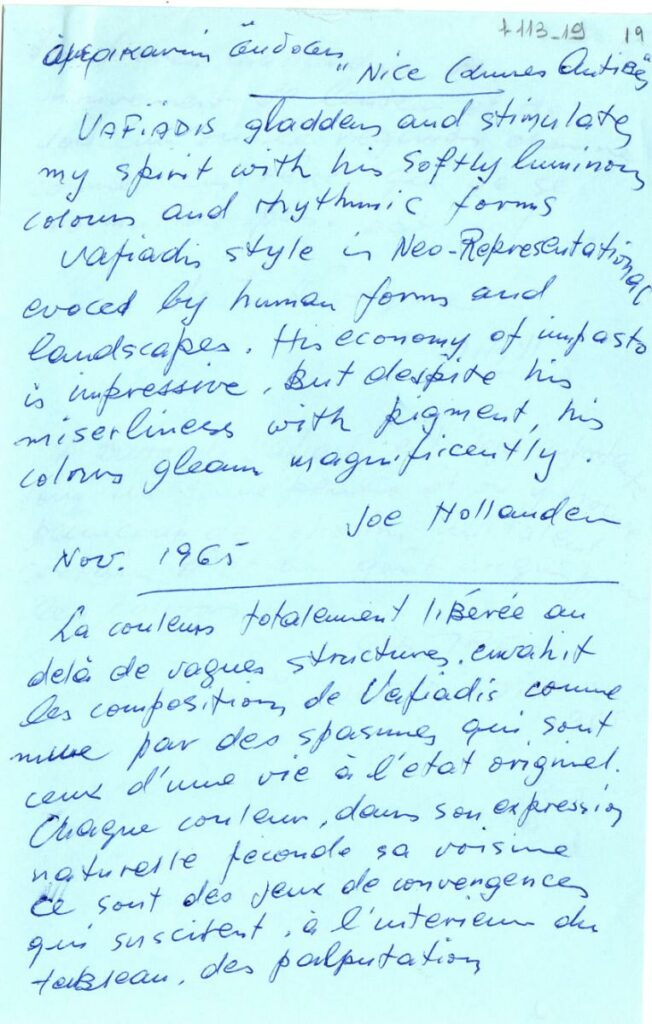 1113_19 19
ἀμερικανική ἔκδοσις
"Nice Cannes Antibes"
VAFIADIS gladdens and stimulates
my spirit with his softly luminous
colours and rhythmic forms
Vafiadis style is Neo-Representational
evoced by human forms and
landscapes. His economy of impasto
is impressive. But despite his
miserliness with pigment, his
colours gleam magnificently.
Joe Hollander
Nov. 1965
La couleurs totalement libérée au
delà de vagues structures, envahit
les compositions de Vafiadis comme
mue par des spasmes qui sont
ceux d'une vie à l'etat originel.
Chaque couleur, dans son expression
naturelle feconde sa voisine
ce sont des jeux de convergences
qui suscitent, à l'interieur du
tableau, des palputations